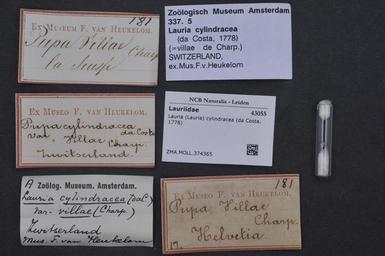 181
Ex Museo F. van Heukelom.
Pupa Villae
Charp
la Sense
Zoölogisch Museum Amsterdam
337. 5
Lauria cylindracea
(da Costa, 1778)
(=villae de Charp.)
SWITZERLAND,
ex.Mus.F.v.Heukelom
Ex Museo F. van Heukelom.
Pupa cylindracea
da Costa
var. Villae
Charp.
Zwitserland.
NCB Naturalis - Leiden
Lauriidae 43055
Lauria (Lauria) cylindracea (da Costa,
1778)
ZMA.MOLL.374365
A Zoölog. Museum. Amsterdam.
Lauria cylindracea (da C.)
var. villae (Charp.)
Zwitserland
Mus. F. van Heukelom
Ex Museo F. van Heukelom.
181
Pupa Villae
Charp.
Helvetia